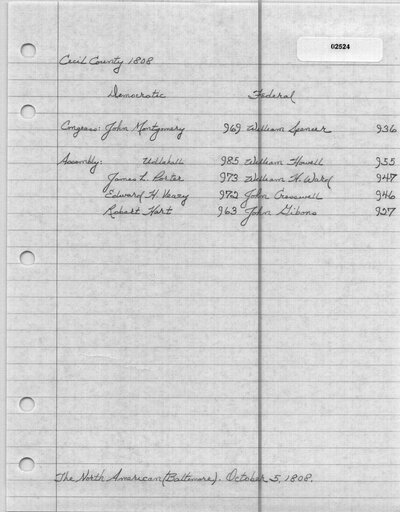 02524
Cecil County 1808
Democratic Federal
Congress: John Montgomery 969 William Spencer 936
Assembly: Udlehall 985 William Howell 955
James L. Porter 973 William H. Ward 947
Edward H. Veazy 972 John Cresswell 946
Robert Hart 963 John Gibons 927
The North American (Baltimore). October 5, 1808.